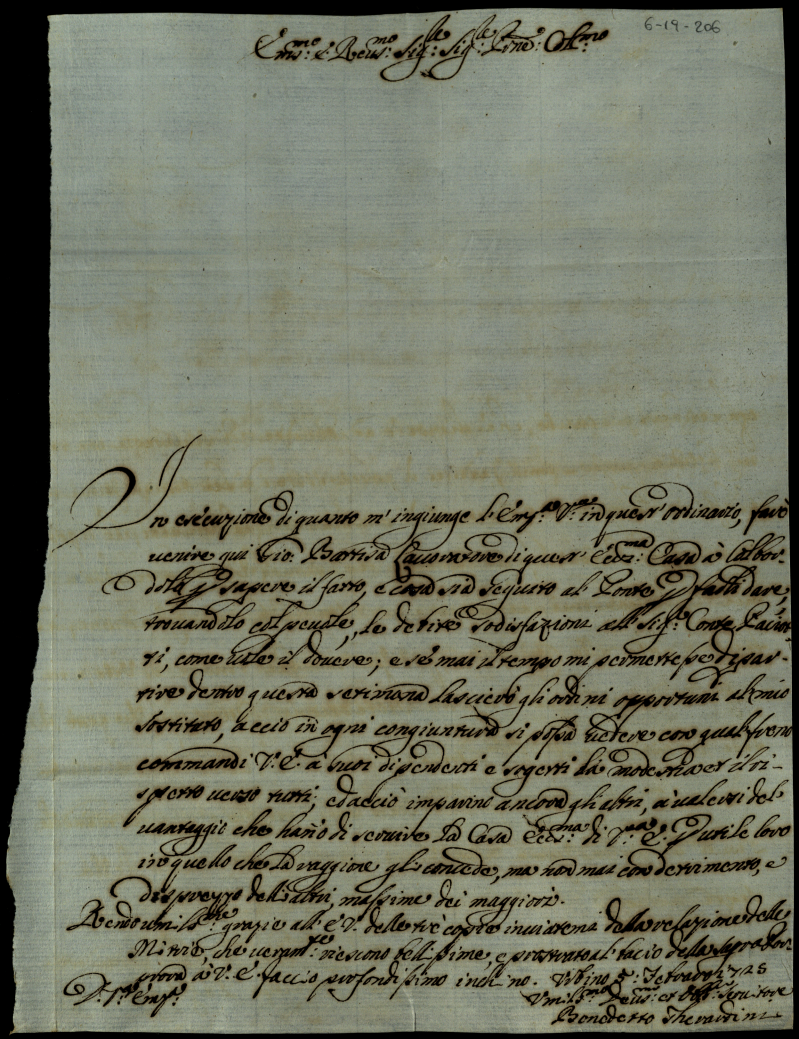 6-19-206
Em.mo e Reu.mo Sig.re Sig.re Prne: Coll.mo
In esecuzione di quanto m'ingiunge l'Em.za V.ra in quest'ordinario, farò
venire qui Gio: Battista Lavoratore di quest' Ecc.ma Casa à Calbor-
dola p sapere il fatto, e cosa sia seguito al Ponte p fargli dare,
trovandolo colpeuole, le debite sodisfazioni all Sig.r Conte
ti, come uole il douere; e se mai il tempo mi permettesse di par-
tire dentro questa settimana lascierò gli ordini opportuni al mio
sostituto, acciò in ogni congiuntura si possa uedere con qual freno
commandi V.E. a suoi dipendenti e sogetti la modestia et il ri-
spetto uerso tutti; ed acciò imparino ancora gli altri, à ualersi del
uantaggio che hanno di seruire la Casa Ecc.ma di V.ra E. p utile loro
in quello che la raggione gli concede, ma non mai con detrimento, e
disprezzo dell'altri, massime dei maggiori.
Rendo umiliss.me grazie all'E.V. delle trè copie inuiatemi della relazione delle
Mitrie, che ueram.te riescono bellissime, e prostrato al bacio della Sagra Por-
pora à V.E. faccio profondissimo inchino. Urbino 5: 1728
D. V.ra Em.za
Vmil.mo Deu.mo et Obb.mo Seruitore
Benedetto Gherardini